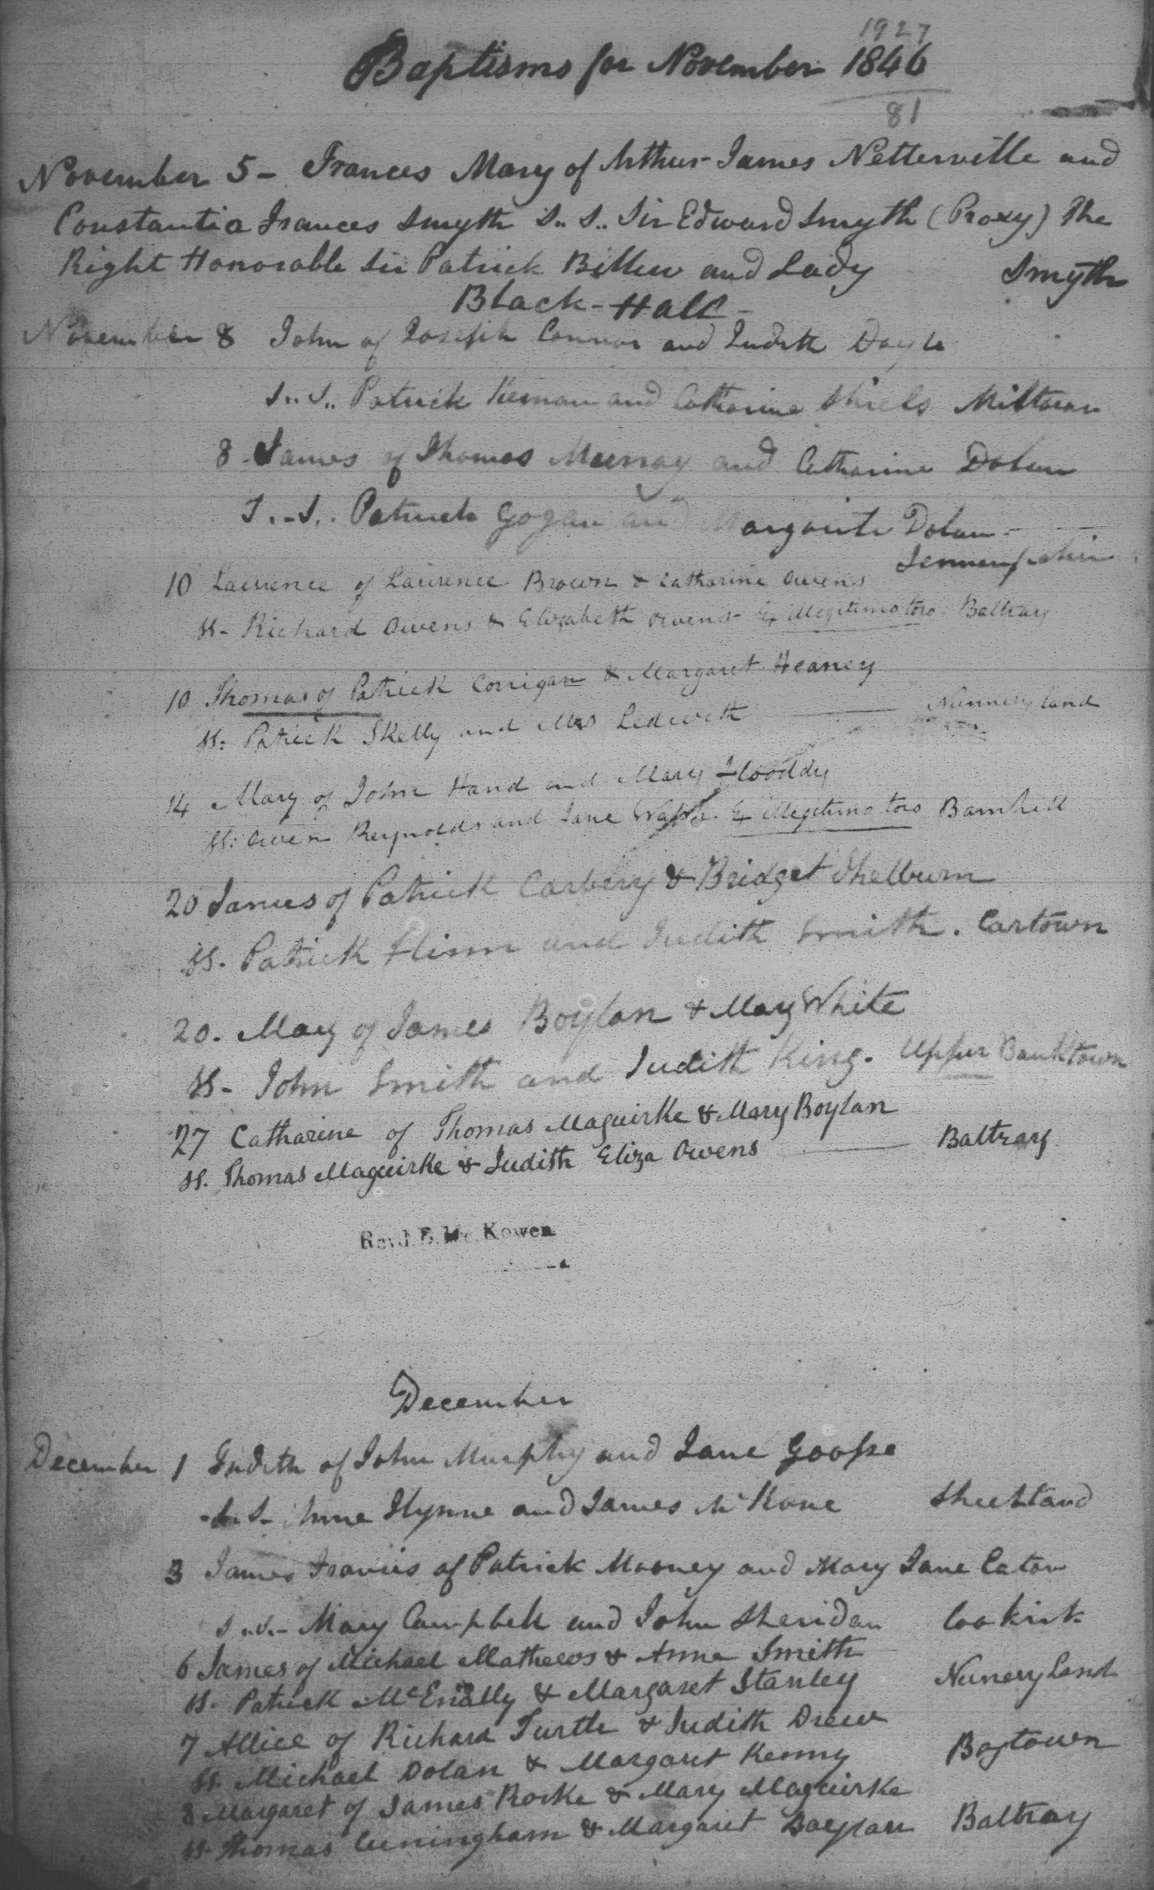 1927
Baptisms for November 1846
81
November 5 - Frances Mary of Arthur James Netterville and
Constantia Frances Smyth S.. S.. Sir Edward Smyth (Proxy) The
Right Honorable Sir Patrick Bellew and Lady Smyth
Black-Hall -
November 8 John of Joseph Connor and Judith Doyle
S.. S.. Patrick Kernan and Catharine Shiels Miltown
8 James of Thomas Murray and Catharine Dolan
S.. S.. Patrick Gogan and Margarite Dolan -
10 Laurence of Laurence Brown & Catharine Owens
SS - Richard Owens & Elizabeth Owens - Ex illegitimo toro - Baltray
10 Thomas of Patrick Corrigan & Margaret Heaney
SS: Patrick Skelly and Mrs Ledwith Nunnery land
14 Mary of John Hand and Mary
SS: Owen Reynolds and Jane Ex illegitimo toro Barnhill
20 James of Patrick Carbery & Bridget Shelburn
SS. Patrick Flinn and Judith Smith. Cartown
20. Mary of James Boylan & Mary White
SS - John Smith and Judith King. Upper Banktown
27 Catharine of Thomas Maguirke & Mary Boylan
SS. Thomas Maguirke & Judith Eliza Owens Baltray
Revd. B. Mc. Kowen
December
December 1 Judith of John Murphy and Jane
S. S - Anne Flynne and James McKone
3 James Francis of Patrick Mooney and Mary Jane Eaton
S.. S. - Mary Campbell and John Sheridan
6 James of Michael Mathews & Anne Smith
SS. Patrick McEnally & Margaret Stanley Nunery Land
7 Allice of Richard Turtle & Judith Drew
SS. Michael Dolan & Margaret Kenny Baytown
8 Margaret of James Rorke & Mary Maguirke
SS. Thomas Cuningham & Margaret Boylan Baltray